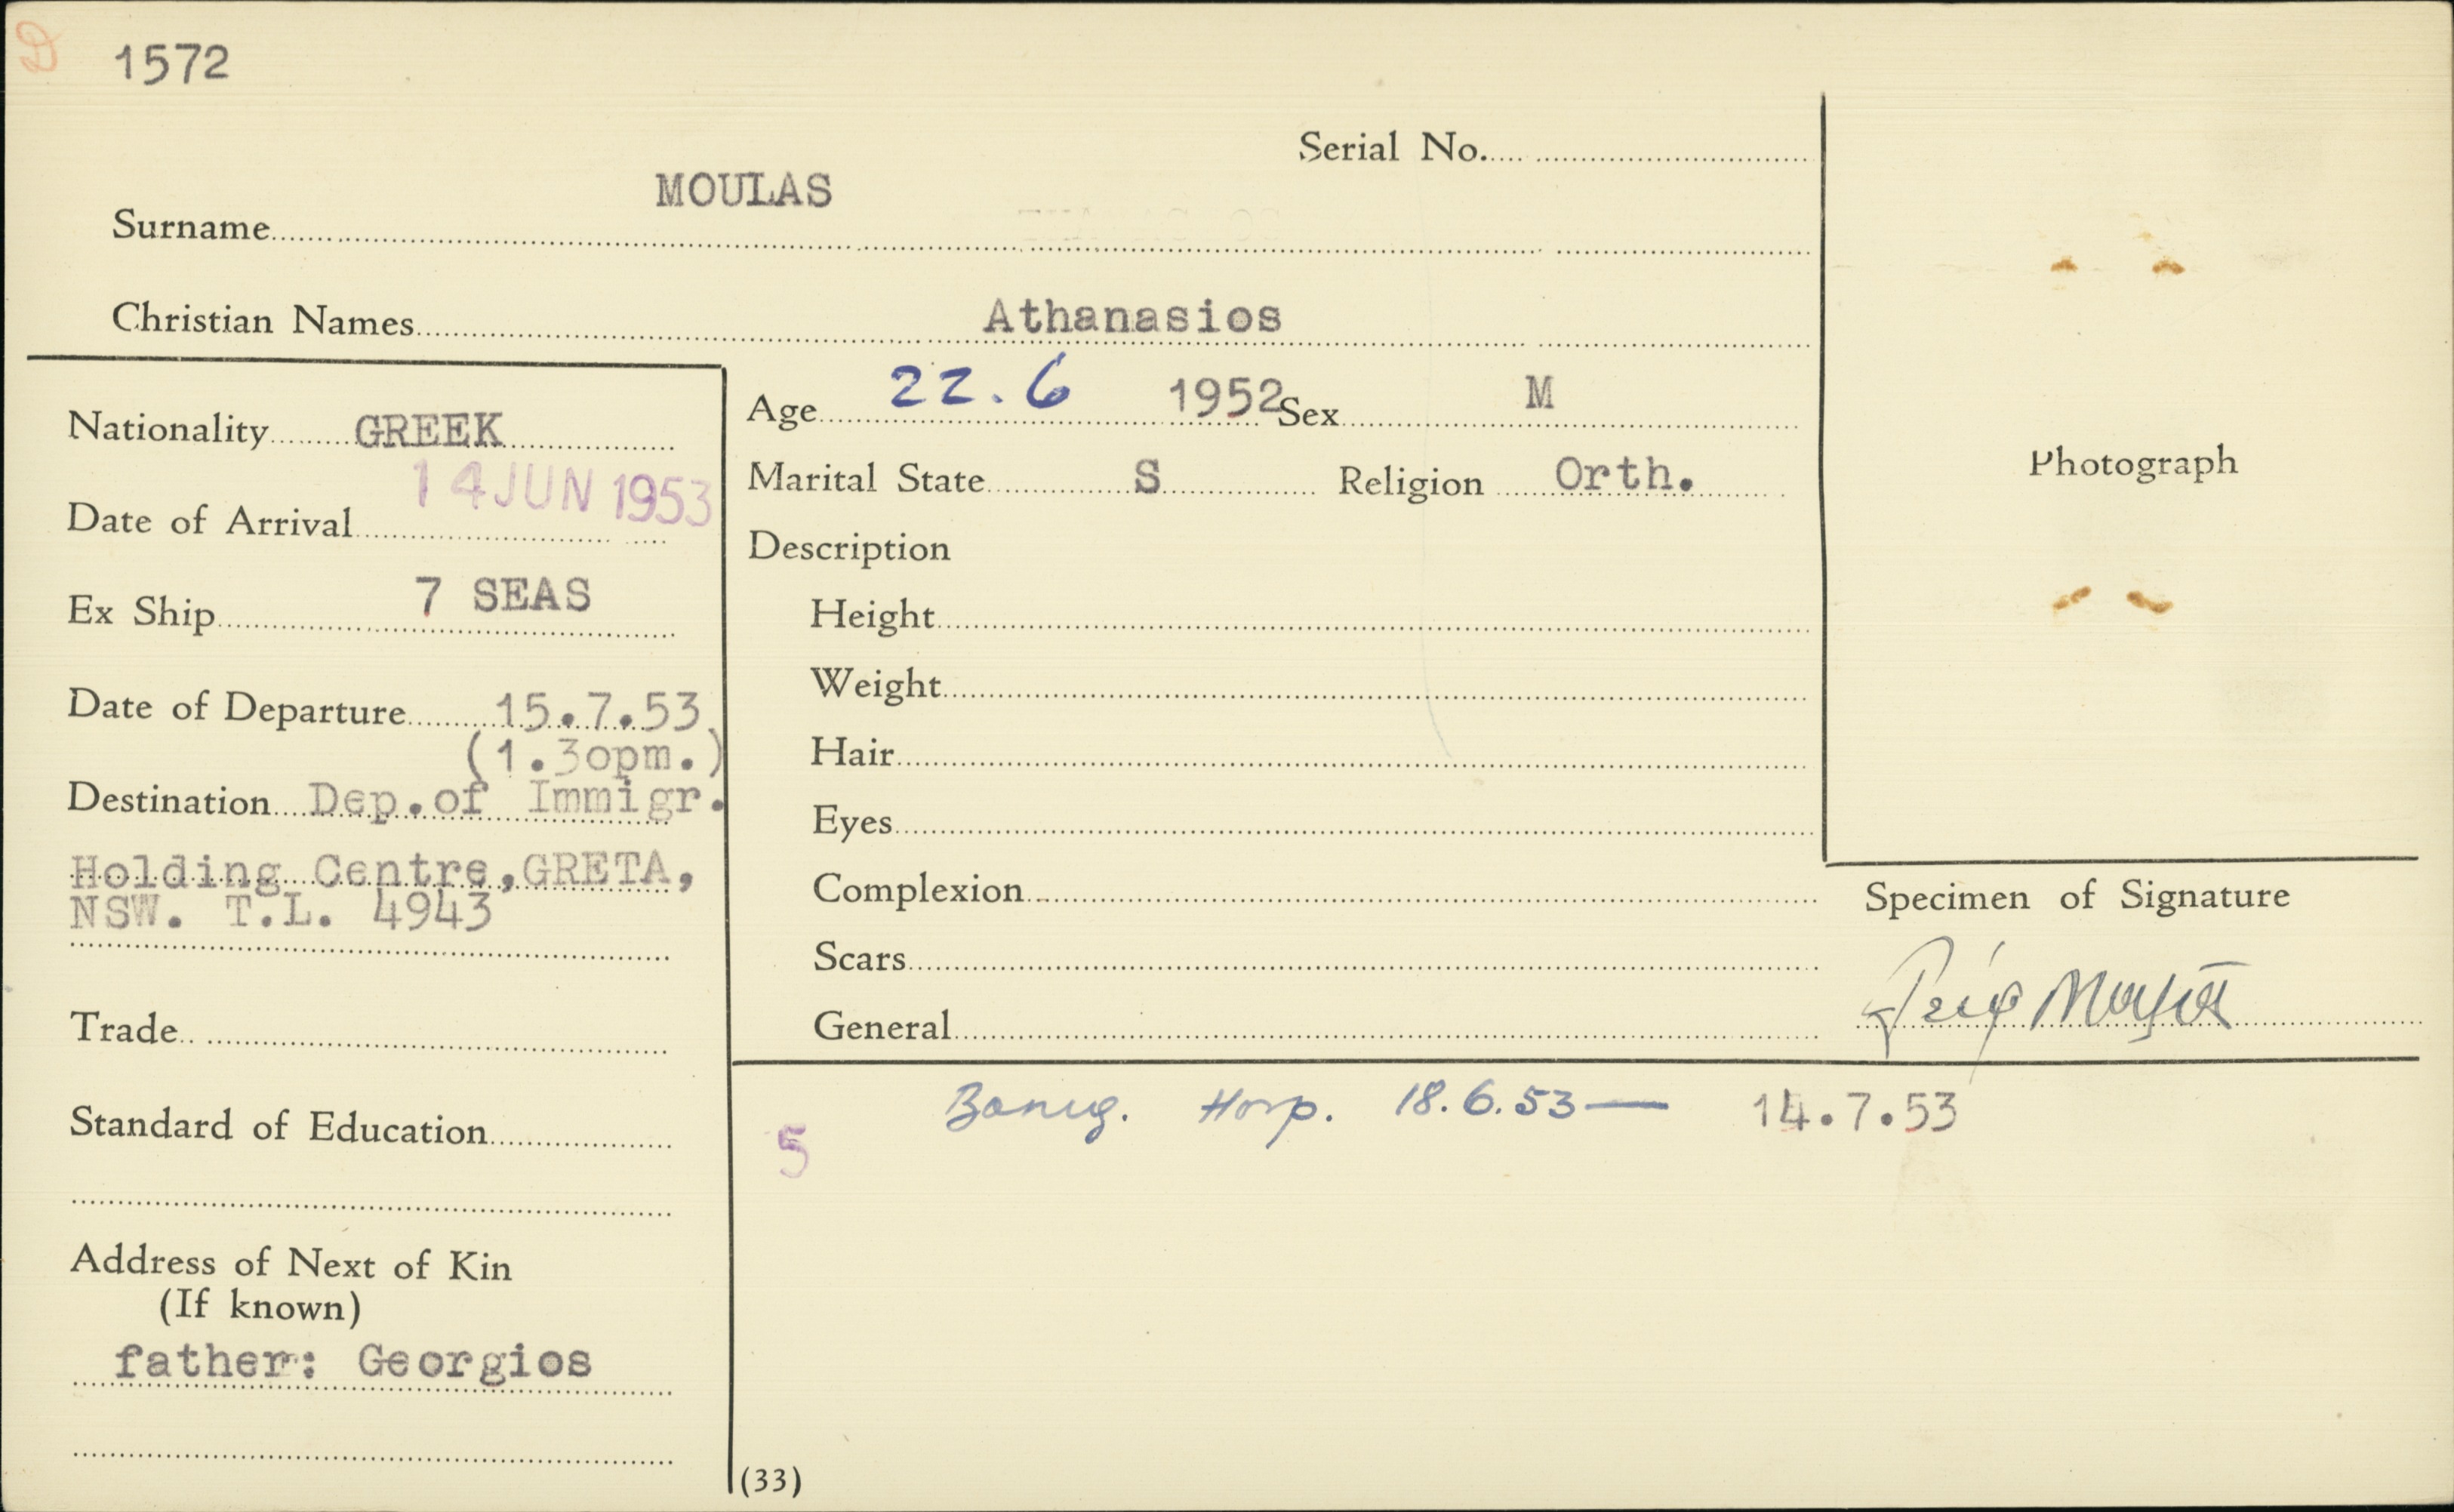 D 1572
Serial No.
MOULAS
Surname
Christian Names Athanasios
Nationality GREEK
14 JUN 1953
Date of Arrival
Ex Ship 7 SEAS
Date of Departure 15.7.53
(1.3opm.)
Destination Dep.of Immigr.
Holding Centre,GRETA,
NSW. T.L. 4943
Trade
Standard of Education
Address of Next of Kin
(If known)
father: Georgios
Age 22.6 1952 Sex M
Marital State S Religion Orth.
Description
Height
Weight
Hair
Eyes
Complexion
Scars
General
Photograph
Specimen of Signature
Hosp. 18.6.53 — 14.7.53
5
(33)